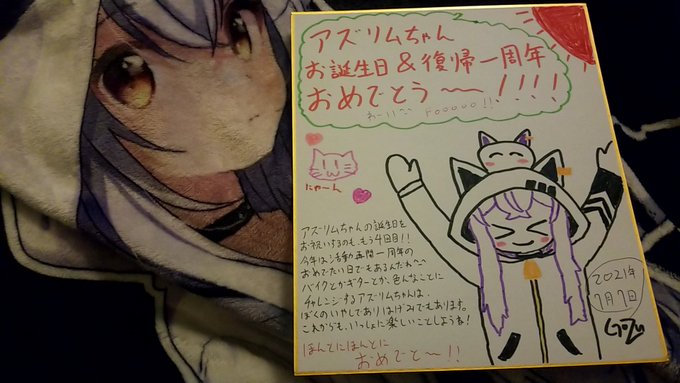 アズリムちゃん
お誕生日&復帰一周年
おめでとう～!!!!
わーい～ roooooo!!
にゃーん
アズリムちゃんの誕生日を
お祝いするのも、もう4回目!!
今年は、活動再開一周年の
おめでたい日でもあるんだね～
バイクとかギターとか、色んなことに
チャレンジするアズリムちゃんは、
ぼくのいやしでありはげみでもあります。
これからも、いっしょに楽しいことしようね!
ほんとにほんとに
おめでと～!!
2021年
7月7日